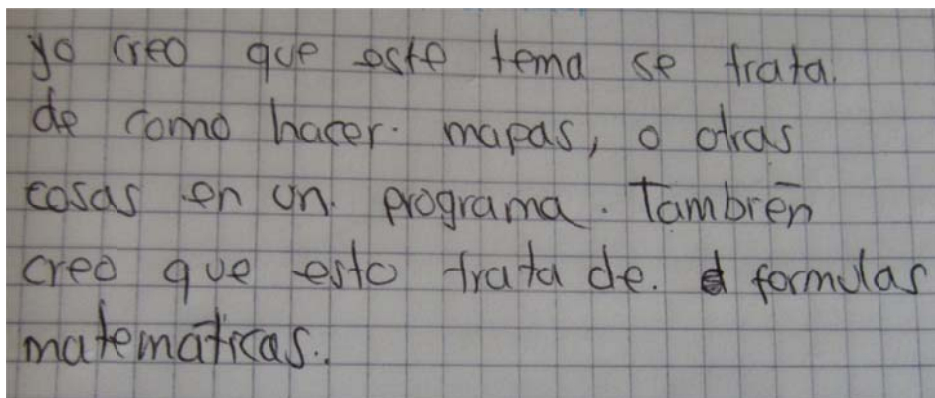 yo creo que este tema se trata.
de como hacer. mapas, o otras
cosas en un. programa. También
creo que esto trata de. formulas
matemáticas..